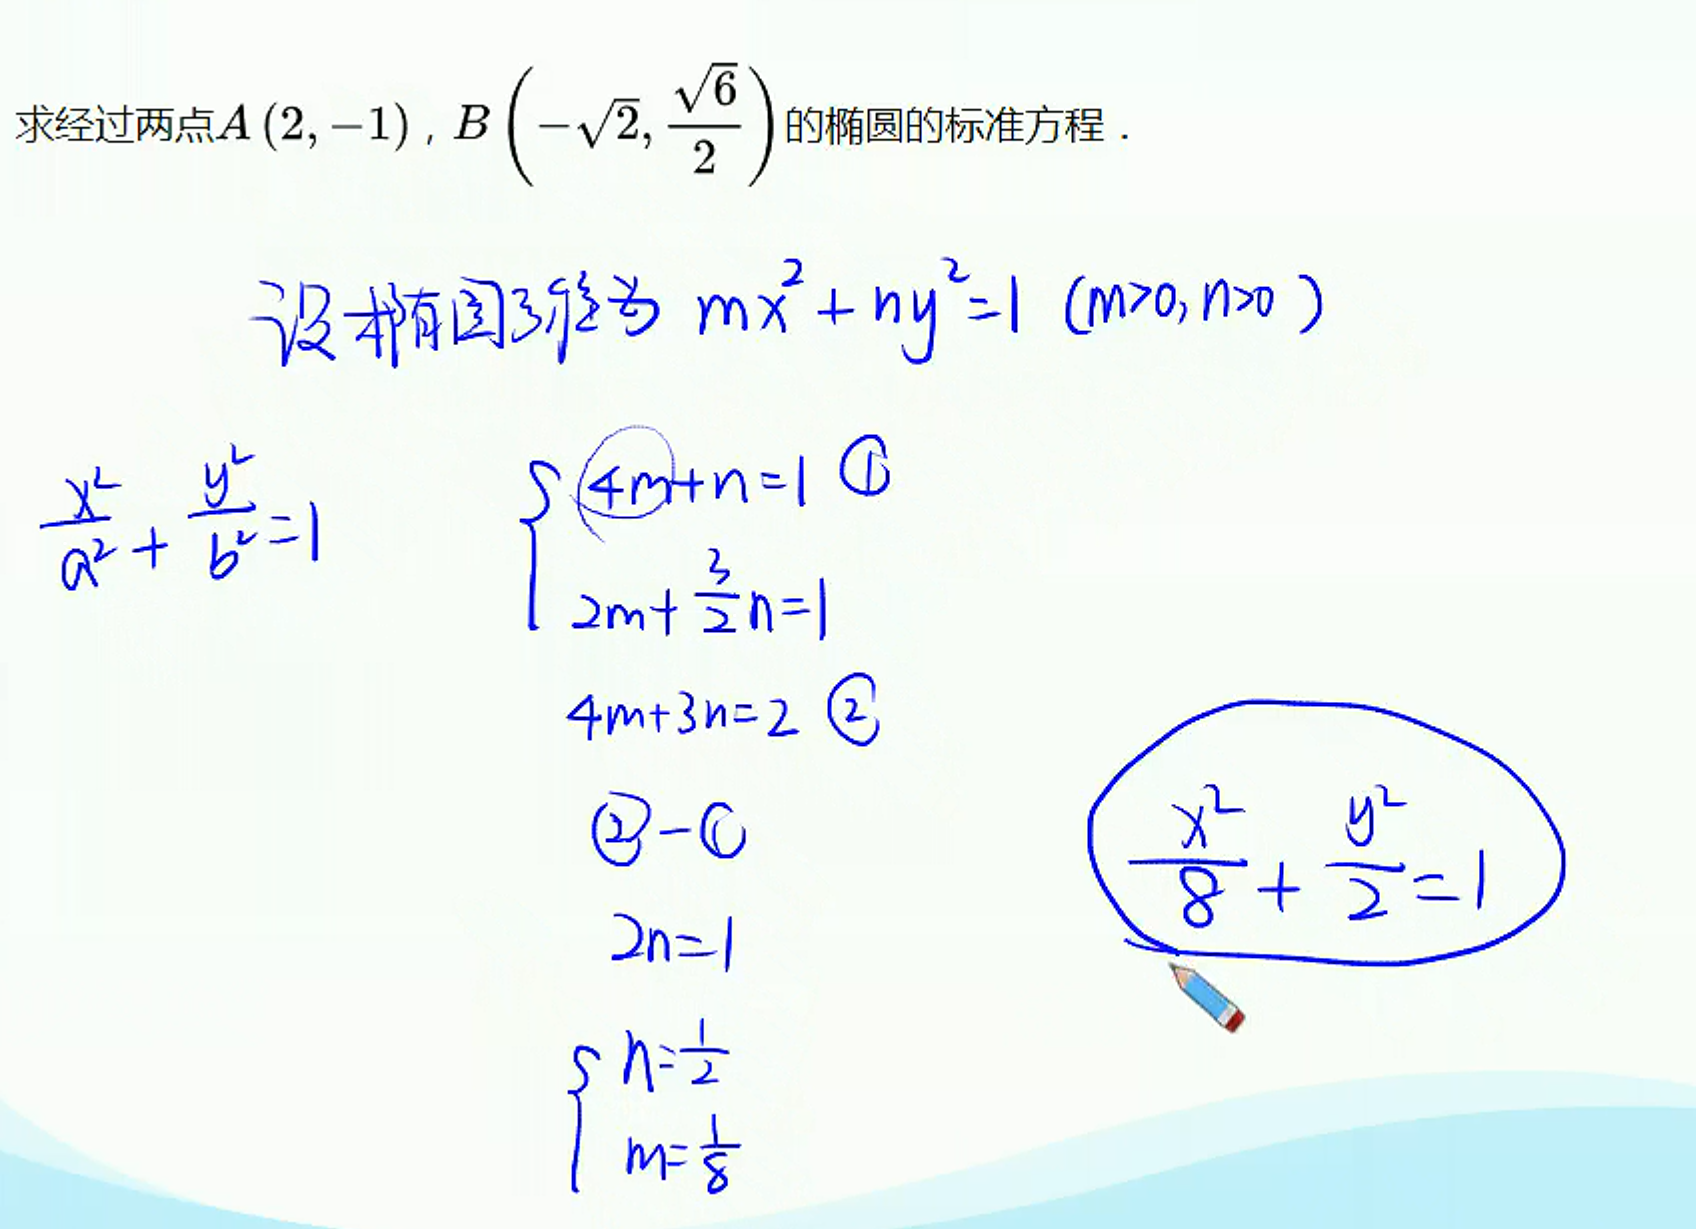 求经过两点A(2,−1)，B(−√2, √6/2)的椭圆的标准方程．
设椭圆方程为 mx²+ny²=1 (m>0,n>0)
x²/a²+y²/b²=1
{4m+n=1 ①
2m+3/2n=1
4m+3n=2 ②
②-①
2n=1
{n=1/2
m=1/8
x²/8+y²/2=1